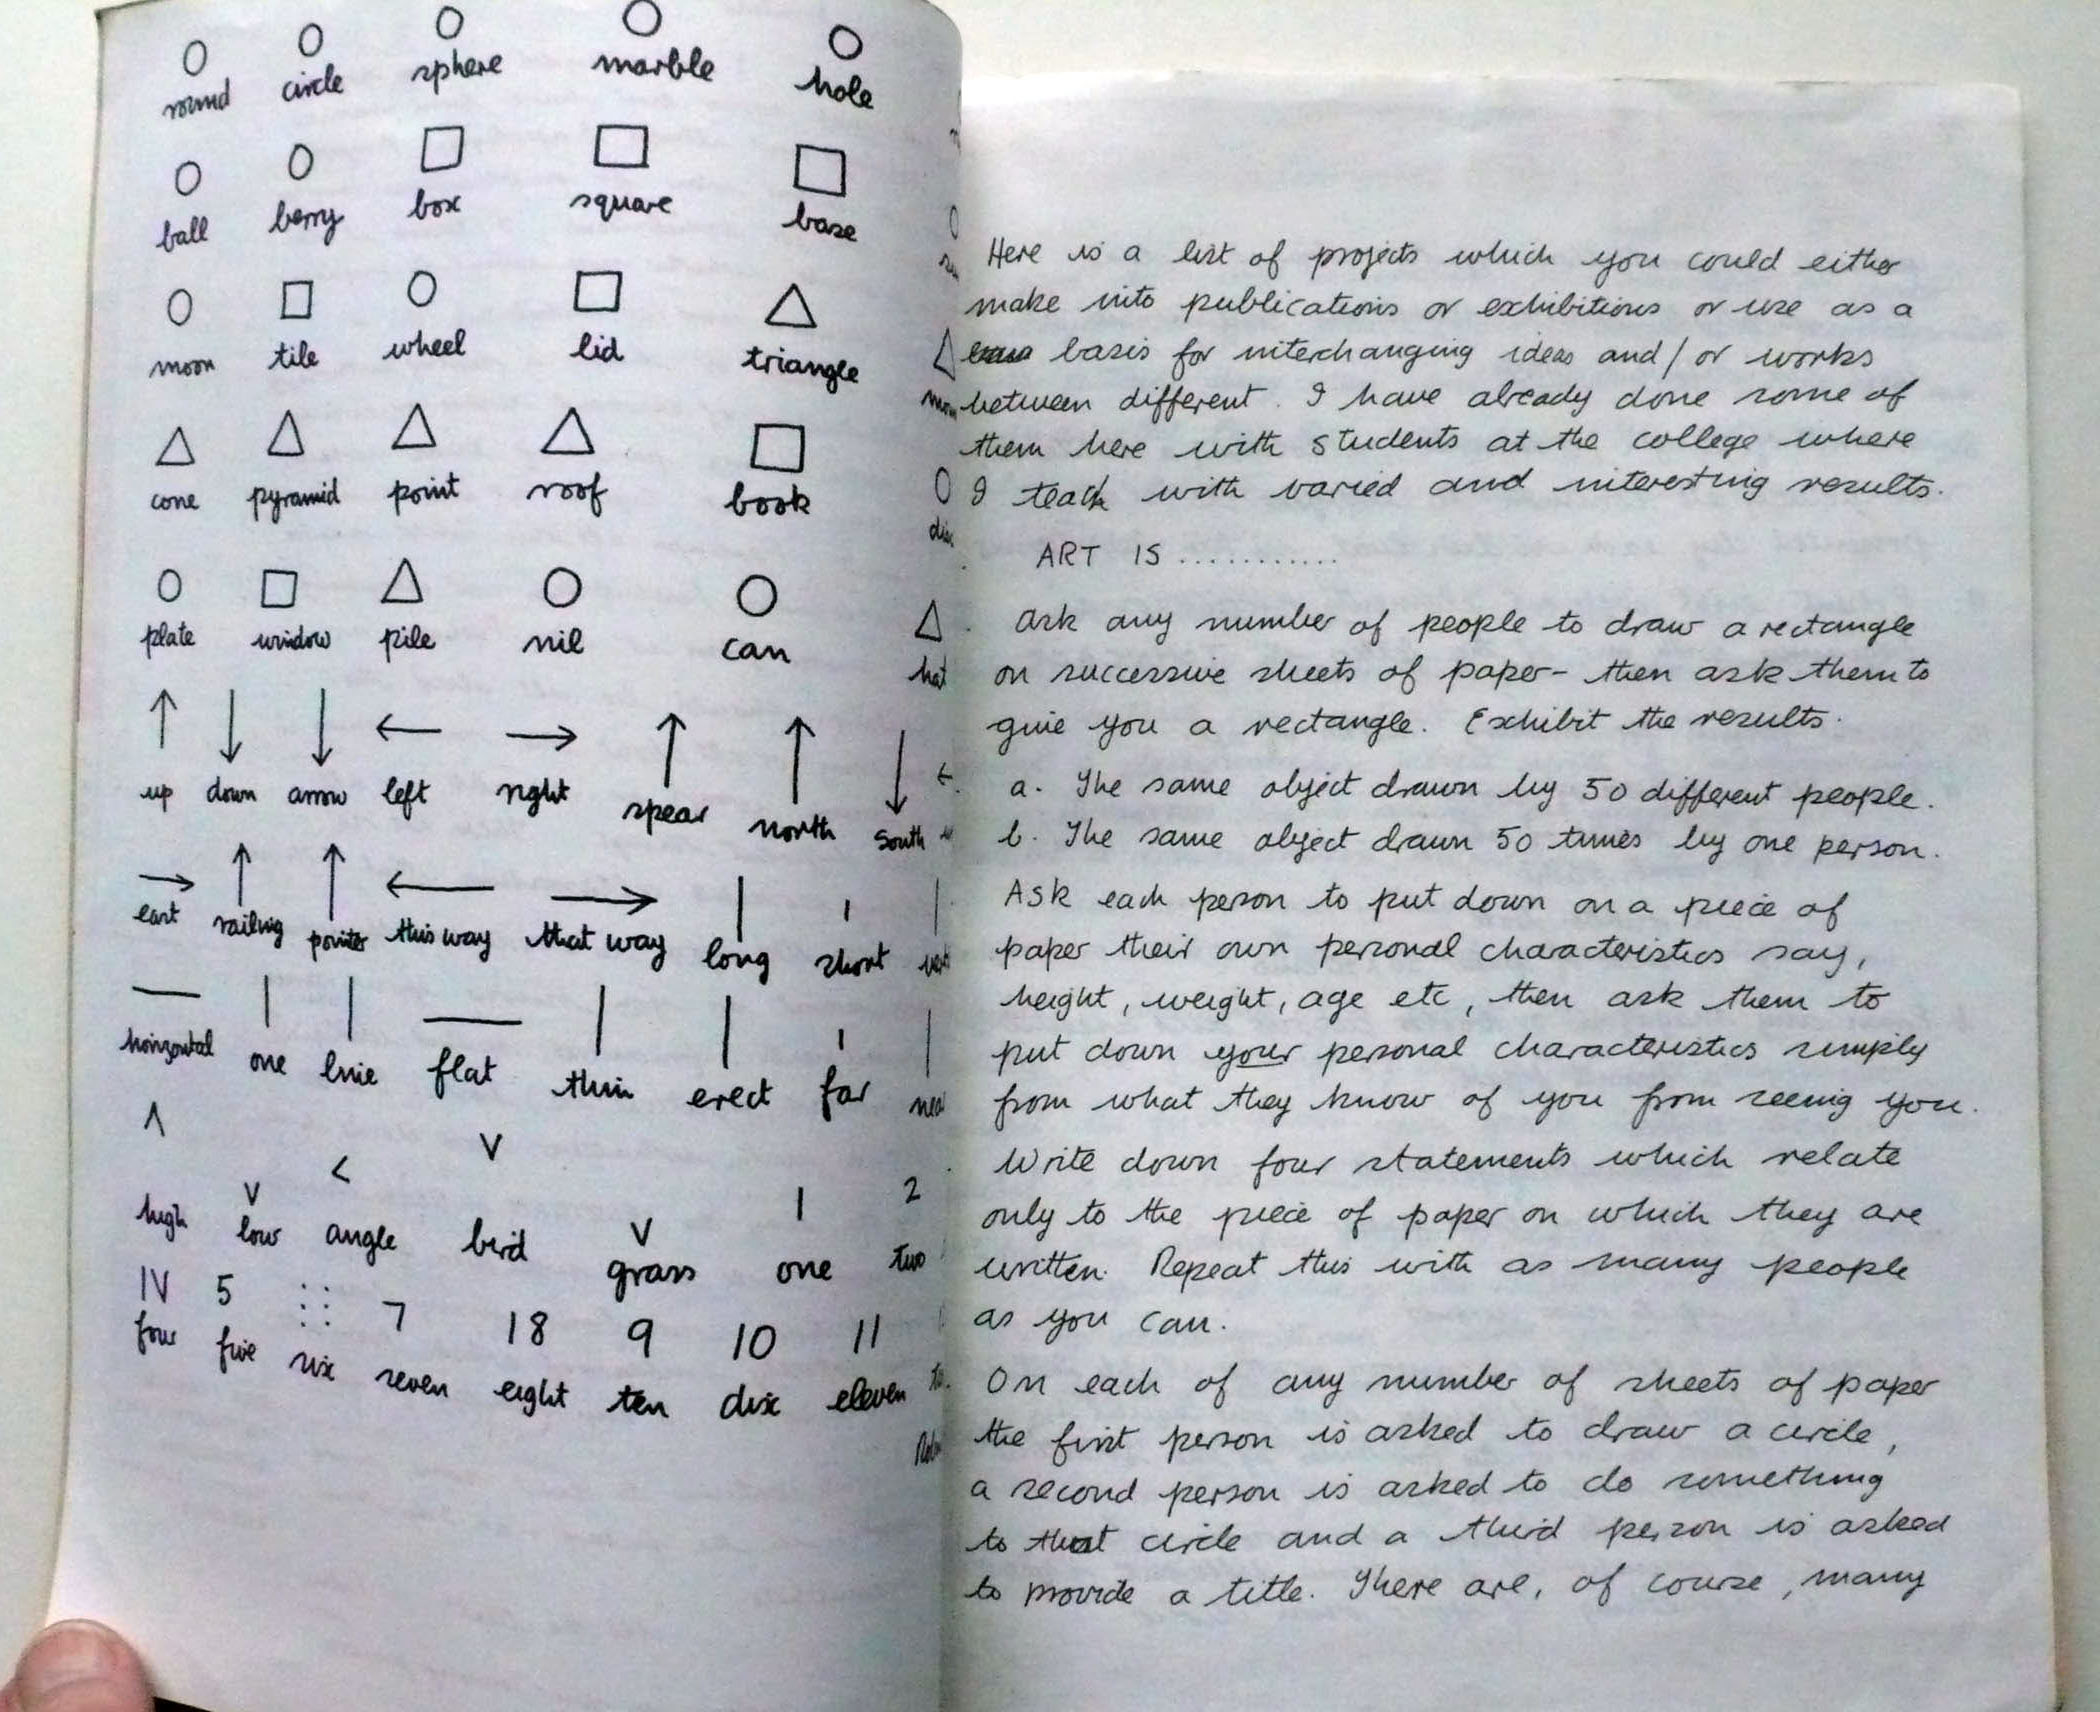 round circle sphere marble hole
ball berry box square base
moon tile wheel lid triangle
cone pyramid point roof book
plate window pile nil can
up down arrow left right spear north south
east railing pointer this way that way long short
horizontal one line flat thin erect far
high low angle bird grass one two
1 2
IV 5 7 18 9 10 11
four five six seven eight ten dix eleven
hat
Here is a list of projects which you could either
make into publications or exhibitions or use as a
basis for interchanging ideas and/or works
between different. I have already done some of
them here with students at the college where
I teach with varied and interesting results.
ART IS ...........
Ask any number of people to draw a rectangle
on successive sheets of paper - then ask them to
give you a rectangle. Exhibit the results.
a. The same object drawn by 50 different people.
b. The same object drawn 50 times by one person.
Ask each person to put down on a piece of
paper their own personal characteristics say,
height, weight, age etc, then ask them to
put down your personal characteristics simply
from what they know of you from seeing you.
Write down four statements which relate
only to the piece of paper on which they are
written. Repeat this with as many people
as you can.
On each of any number of sheets of paper
the first person is asked to draw a circle,
a second person is asked to do something
to that circle and a third person is asked
to provide a title. There are, of course, many